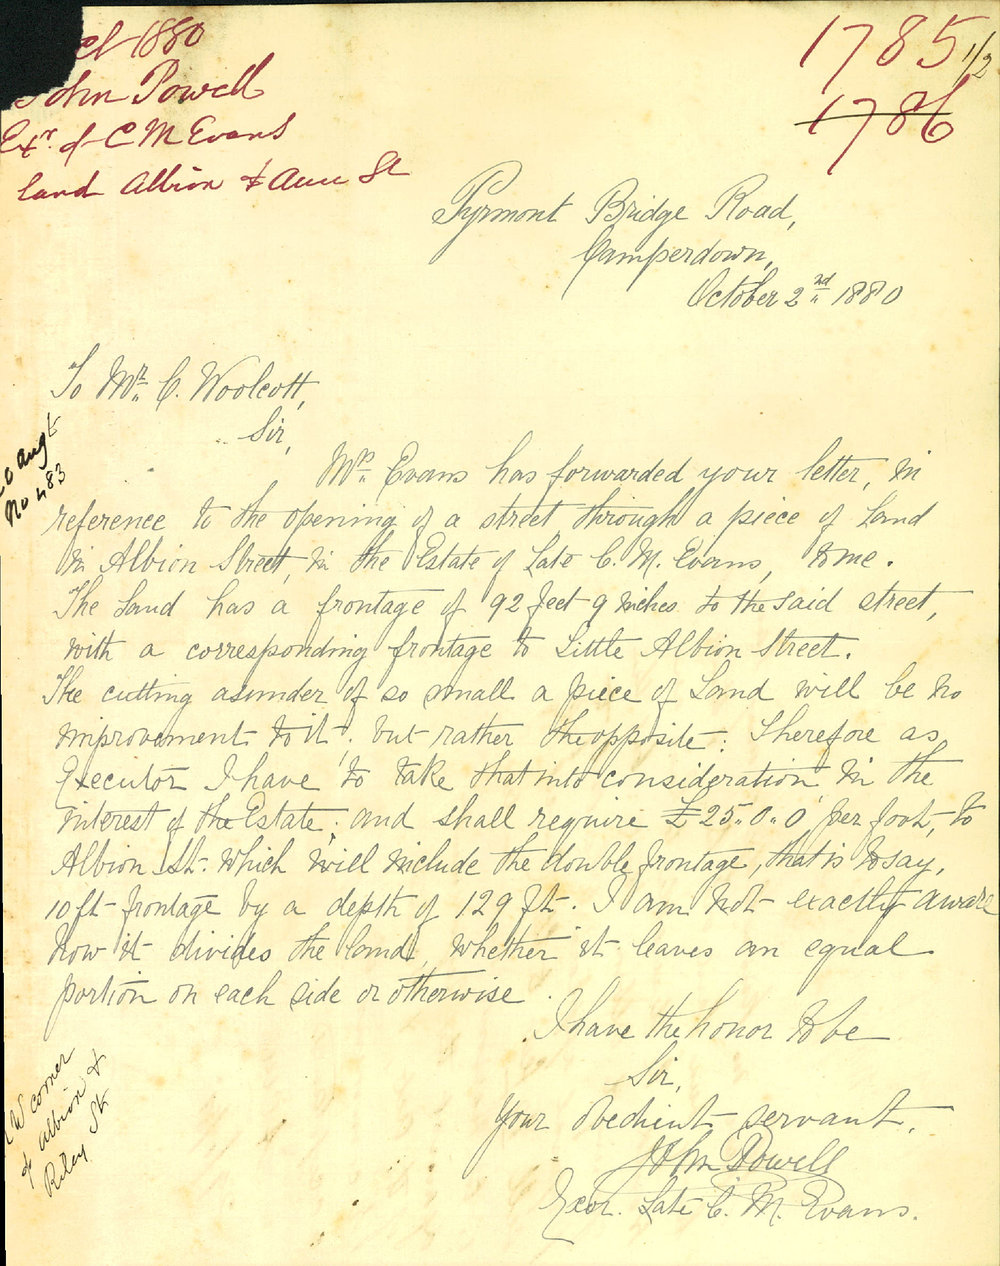 ct 1880
John Powell
Exr. of C M Evans
land Albion & Ann St
1785 1/2
1786
Pyrmont Bridge Road,
Camperdown,
October 2nd 1880
To Mr. C. Woolcott,
Sir,
0 Augt
No 483
Mrs. Evans has forwarded your letter, in
reference to the opening of a street through a piece of Land
in Albion Street, in the Estate of Late C. M. Evans, to me.
The Land has a frontage of 92 feet 9 inches to the said street,
with a corresponding frontage to Little Albion Street.
The cutting asunder of so small a piece of Land will be no
improvement to it, but rather the opposite: Therefore as
Executor I have to take that into consideration in the
interest of the Estate; and shall require £25.0.0 per foot, to
Albion St. which will include the double frontage, that is to say,
10 ft frontage by a depth of 129 ft. I am not exactly aware
how it divides the land, whether it leaves an equal
portion on each side or otherwise.
I have the honor to be
Sir,
Your obedient servant.
John Powell
Exor. Late C. M. Evans.
W corner
of Albion &
Riley St